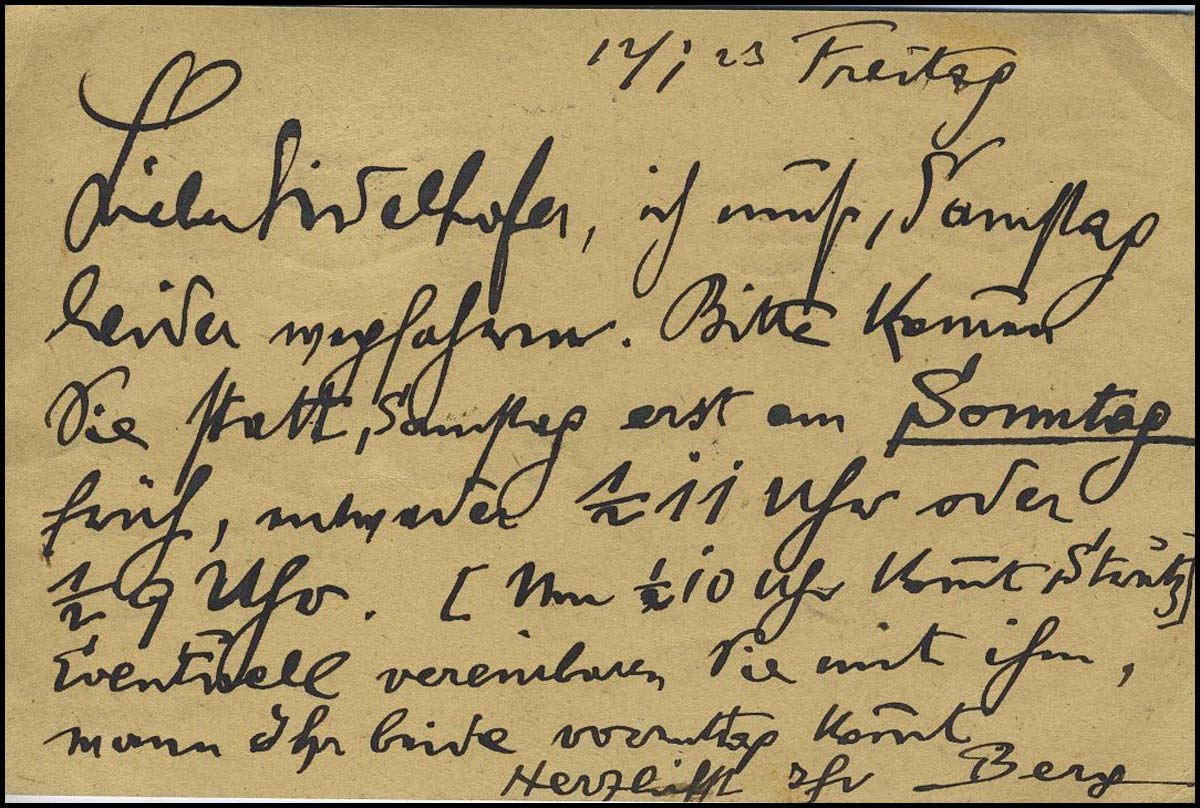 12/i 23 Freitag
Lieber Seidelhofer, ich muß Samstag
leider wegfahren. Bitte Kom̄en
Sie statt Samstag erst am Sonntag
früh, entweder ½ 11 Uhr oder
½ 9 Uhr. [Um ½ 10 Uhr Kom̄t Strutz]
Eventuell vereinbaren Sie mit ihm,
wann Ihr beide vormittag Kom̄t
Herzlichst Ihr Berg